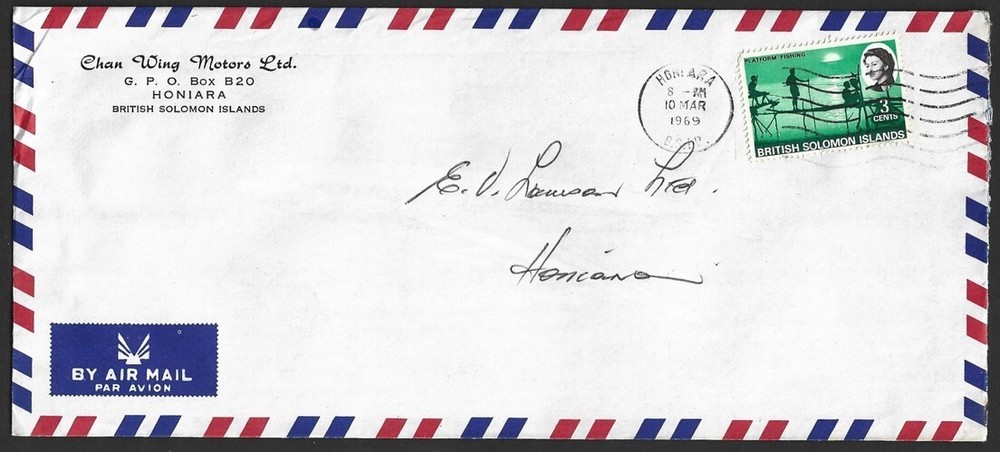 Chan Wing Motors Ltd.
G. P. O. Box B20
HONIARA
BRITISH SOLOMON ISLANDS
HONIARA
8 - AM
10 MAR
1969
PLATFORM FISHING
3
CENTS
BRITISH SOLOMON ISLANDS
E. V. Lawson Ltd.
Honiara
BY AIR MAIL
PAR AVION